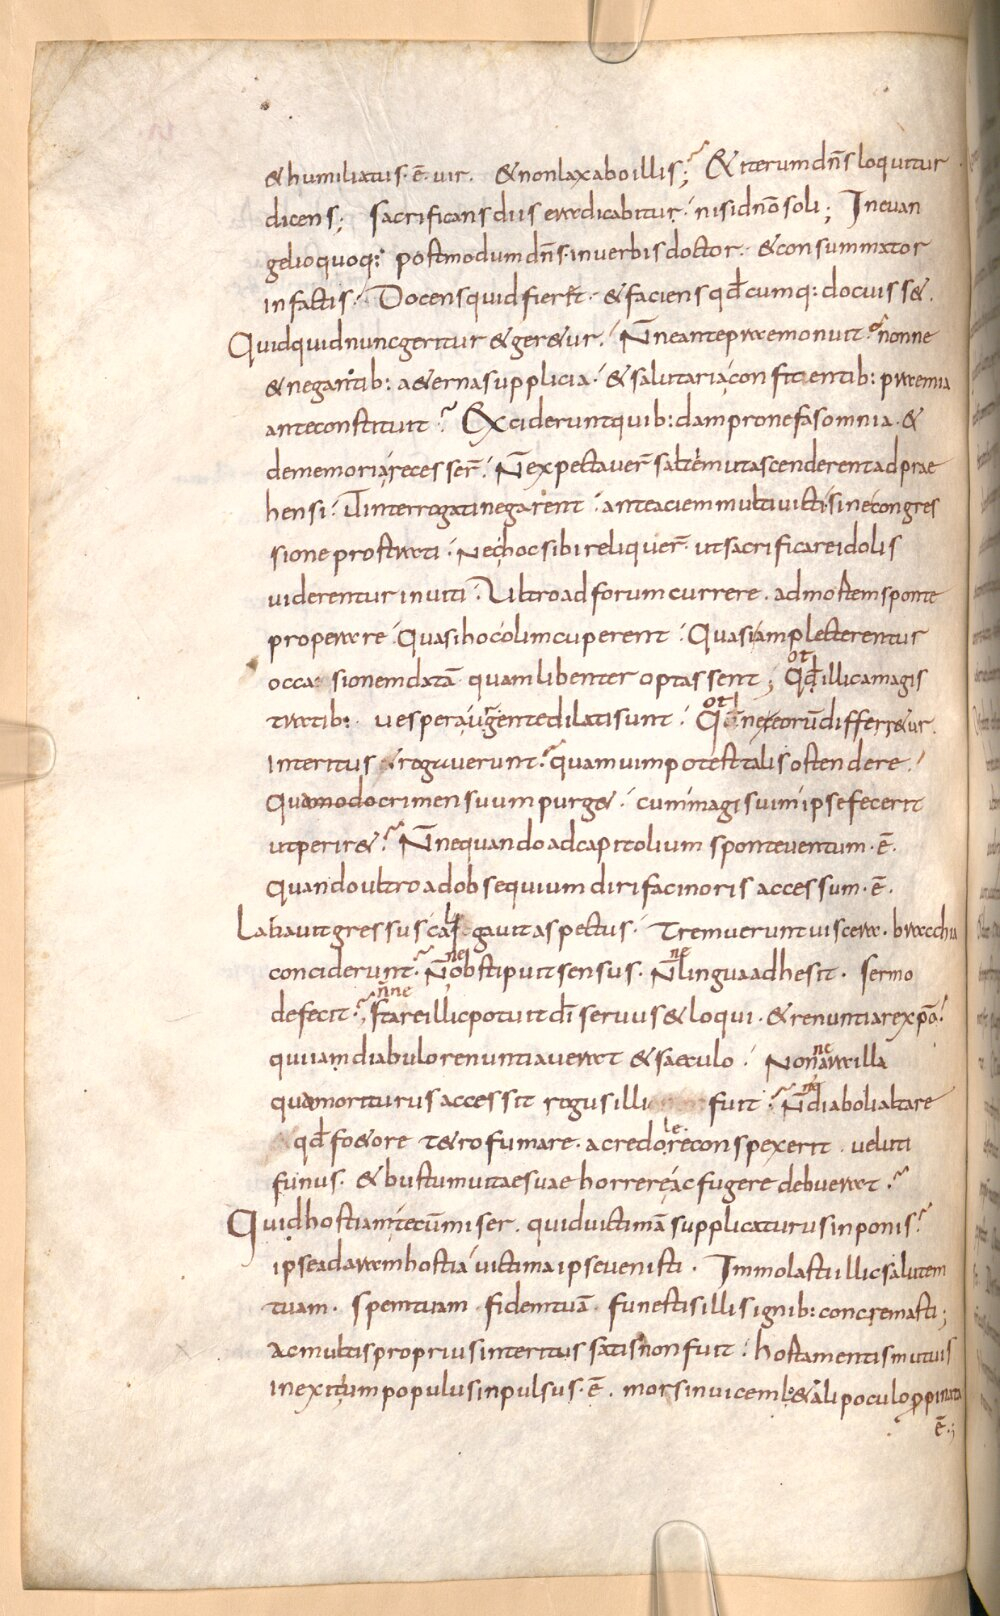 & humiliatus·ē·uir· & non laxabo illis; & iterum dn̄s loquitur
dicens; sacrificans diis eradicabitur· nisi dn̄o soli; In euan
gelio quoq: postmodum dn̄s· in uerbis doctor· & consummator
in factis· Docens quid fier&· & faciens qd̄cumq: docuiss&·
Quidquid nunc geritur & ger&ur· N̄ne ante praemonuit? nonne
& negantib: a&erna supplicia· & salutaria confitientib: praemia
ante constituit? Exciderunt quib:dam pro nefas omnia· &
de memoria recesser̄· N̄ expectauer̄ saltem ut ascenderent ad prae
hensi· Ut interrogati negarent· ante aciem multi uicti sine congres
sione prostrati· Nec hoc sibi reliquer̄· ut sacrificare idolis
uiderentur inuiti· Ultro ad forum currere· ad mortem sponte
properare· Quasi hoc olim cuperent· Quasi amplecterentur
occa sionem datā quam libenter optassent; Qd̄ot illic a magis
tratib:· uespera urgente dilati sunt· Qd̄ot ne eorū differr&ur
interitus & rogauerunt? quam uim potest talis ostendere·
Quomodo crimen suum purg&· cum magis uim ipse fecerit
ut perir&? N̄ne quando ad capitolium sponte uentum·ē·
Quando ultro ad obsequium diri facinoris accessum·ē·
Labauit gressus caligauit aspectus· Tremuerunt uiscera· bracchia
conciderunt? N̄ne obstipuit sensus· N̄ne lingua adhesit· sermo
defecit? n̄ne stare illic potuit dī seruus & loqui· & renuntiare xp̄o?
qui iam diabulo renuntiauerat & saeculo· Nonne ara illa
quo moriturus accessit rogus illi fuit? N̄ne diaboli altare
qd̄ fo&ore t&ro fumare· ac redolere conspexerit· ueluti
funus· & bustum uitae suae horrere ac fugere debuerat?
Quid hostiam tecū miser· quid uictimā supplicaturus inponis?
ipse ad aram hostia uictima ipse uenisti· Immolasti illic salutem
tuam· spem tuam· fidem tuā· funestis illis ignib: concremasti;
ac multis proprius interitus satis non fuit· hortamentis mutuis
in exitium populus inpulsus·ē· mors inuicem l&ali poculo ꝓpinata
ē·;